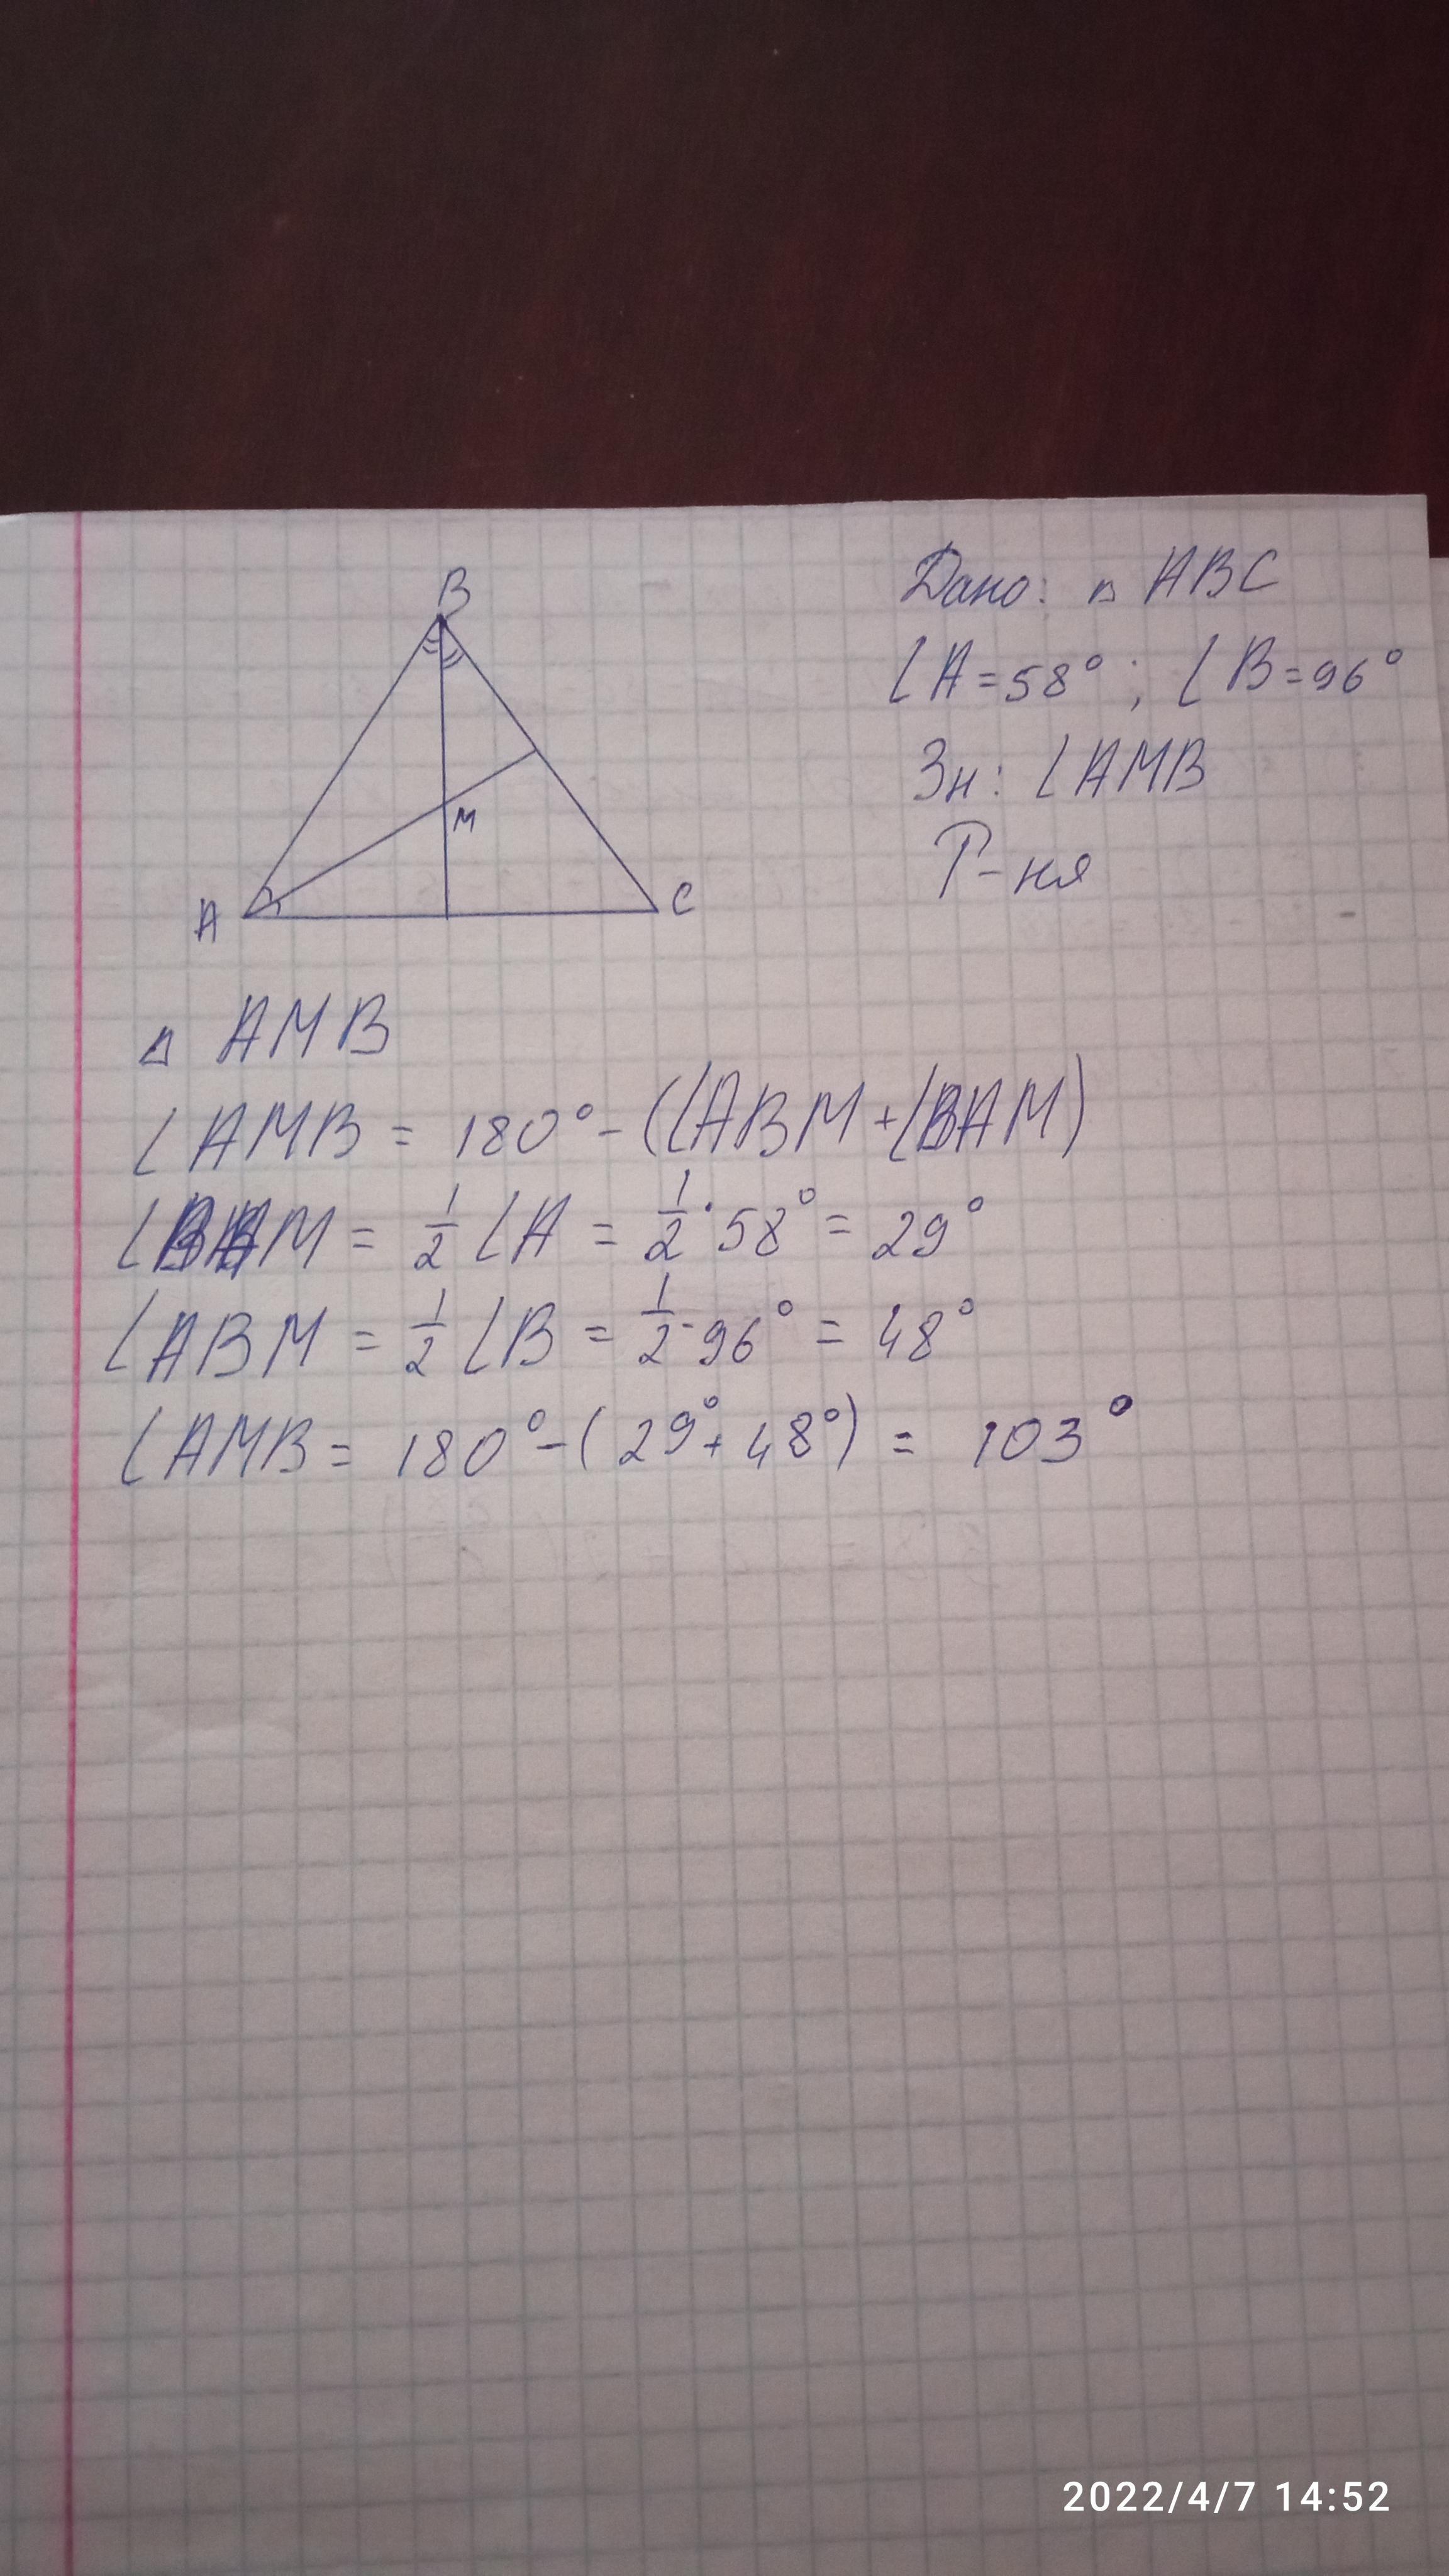 B
M
A
C
Дано: △ ABC
∠A=58°; ∠B=96°
Зн: ∠AMB
Р-ня
△ AMB
∠AMB = 180° - (∠ABM + ∠BAM)
∠BAM = 1/2 ∠A = 1/2 · 58° = 29°
∠ABM = 1/2 ∠B = 1/2 · 96° = 48°
∠AMB = 180° - (29° + 48°) = 103°
2022/4/7 14:52